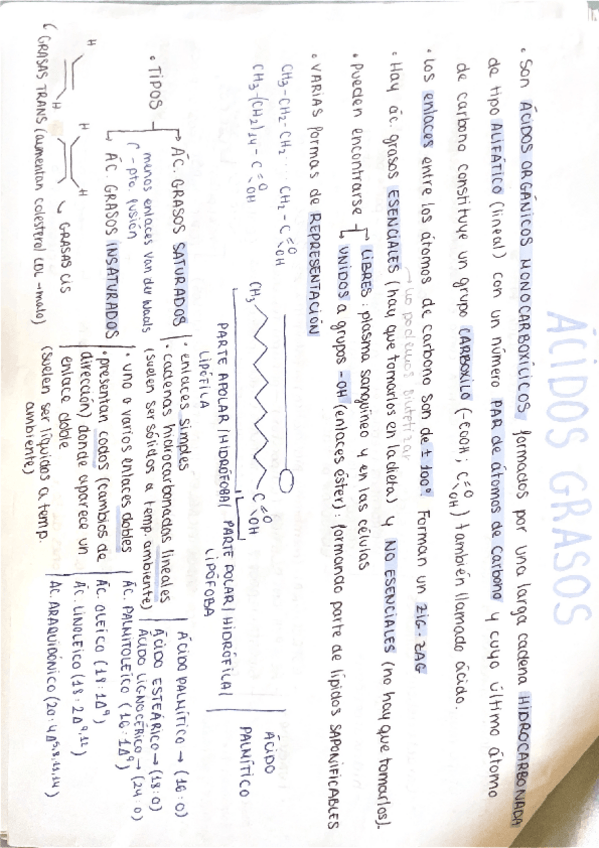 ÁCIDOS GRASOS
• Son ÁCIDOS ORGÁNICOS MONOCARBOXÍLICOS, formados por una larga cadena HIDROCARBONADA
de tipo ALIFÁTICO (lineal) con un número PAR de átomos de carbono y cuyo último átomo
de carbono constituye un grupo CARBOXILO (-COOH; C=O OH) también llamado ácido.
• Los enlaces entre los átomos de carbono son de ± 100°. Forman un ZIG-ZAG
↳ no podemos sintetizar
• Hay ác. grasos ESENCIALES (hay que tomarlos en la dieta) y NO ESENCIALES (no hay que tomarlos).
• Pueden encontrarse
LIBRES: plasma sanguíneo y en las células
UNIDOS a grupos -OH (enlaces éster): formando parte de lípidos SAPONIFICABLES
• VARIAS formas de REPRESENTACIÓN
CH3-CH2-CH2 ... CH2-C=O OH
CH3-(CH2)14-C=O OH
CH3 C=O OH
ÁCIDO PALMÍTICO
PARTE APOLAR / HIDRÓFOBA / LIPÓFILA
PARTE POLAR / HIDRÓFILA / LIPÓFOBA
• TIPOS
ÁC. GRASOS SATURADOS
menos enlaces Van der Waals
- pto. fusión
• enlaces simples
• cadenas hidrocarbonadas lineales
(suelen ser sólidos a temp. ambiente)
ÁCIDO PALMÍTICO → (16:0)
ÁCIDO ESTEÁRICO → (18:0)
ÁCIDO LIGNOCÉRICO → (24:0)
ÁC. GRASOS INSATURADOS
• uno o varios enlaces dobles
• presentan codos (cambios de
dirección) donde aparece un
enlace doble
(suelen ser líquidos a temp.
ambiente)
ÁC. PALMITOLEICO (16:1Δ9)
ÁC. OLEICO (18:1Δ9)
ÁC. LINOLEICO (18:2Δ9,12)
ÁC. ARAQUIDÓNICO (20:4Δ5,8,11,14)
H H H H
↳ GRASAS CIS
GRASAS TRANS (aumentan colesterol LDL → malo)